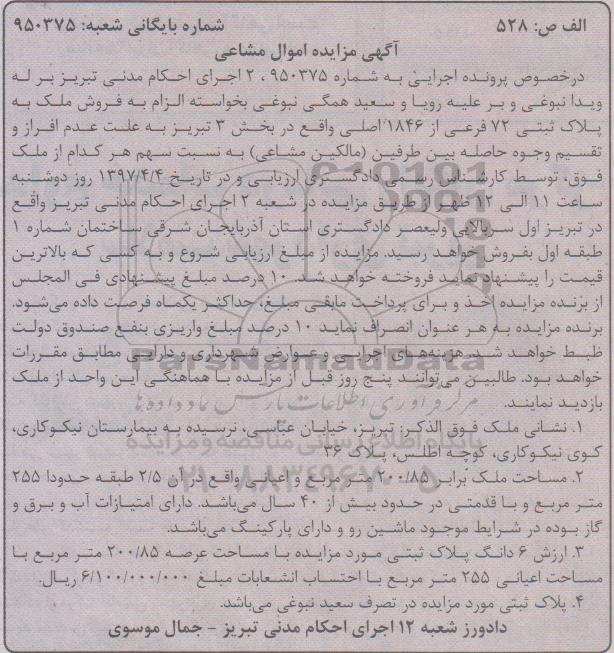 الف ص: ۵۲۸ شماره بایگانی شعبه: ۹۵۰۳۷۵
آگهی مزایده اموال مشاعی
درخصوص پرونده اجرایی به شماره ۹۵۰۳۷۵ ، ۲ اجرای احکام مدنی تبریز بر له
ویدا نبوغی و بر علیه رویا و سعید همگی نبوغی بخواسته الزام به فروش ملک به
پلاک ثبتی ۷۲ فرعی از ۱۸۴۶ اصلی واقع در بخش ۳ تبریز به علت عدم افراز و
تقسیم وجوه حاصله بین طرفین (مالکین مشاعی) به نسبت سهم هر کدام از ملک
فوق، توسط کارشناس رسمی دادگستری ارزیابی و در تاریخ ۱۳۹۷/۴/۴ روز دوشنبه
ساعت ۱۱ الی ۱۲ ظهر از طریق مزایده در شعبه ۲ اجرای احکام مدنی تبریز واقع
در تبریز اول سربالایی ولیعصر دادگستری استان آذربایجان شرقی ساختمان شماره ۱
طبقه اول بفروش خواهد رسید. مزایده از مبلغ ارزیابی شروع و به کسی که بالاترین
قیمت را پیشنهاد نماید فروخته خواهد شد. ۱۰ درصد مبلغ پیشنهادی فی المجلس
از برنده مزایده اخذ و برای پرداخت مابقی مبلغ، حداکثر یکماه فرصت داده می‌شود.
برنده مزایده به هر عنوان انصراف نماید ۱۰ درصد مبلغ واریزی بنفع صندوق دولت
ضبط خواهد شد. هزینه‌های اجرایی و عوارض شهرداری و دارایی مطابق مقررات
خواهد بود. طالبین می‌توانند پنج روز قبل از مزایده با هماهنگی این واحد از ملک
بازدید نمایند.
۱. نشانی ملک فوق الذکر: تبریز، خیابان عباسی، نرسیده به بیمارستان نیکوکاری،
کوی نیکوکاری، کوچه اطلس، پلاک ۳۶
۲. مساحت ملک برابر ۲۰۰/۸۵ متر مربع و اعیانی واقع در آن ۲/۵ طبقه حدودا ۲۵۵
متر مربع و با قدمتی در حدود بیش از ۴۰ سال می‌باشد. دارای امتیازات آب و برق و
گاز بوده در شرایط موجود ماشین رو و دارای پارکینگ می‌باشد.
۳. ارزش ۶ دانگ پلاک ثبتی مورد مزایده با مساحت عرصه ۲۰۰/۸۵ متر مربع با
مساحت اعیانی ۲۵۵ متر مربع با احتساب انشعابات مبلغ ۶/۱۰۰/۰۰۰/۰۰۰ ریال.
۴. پلاک ثبتی مورد مزایده در تصرف سعید نبوغی می‌باشد.
دادورز شعبه ۱۲ اجرای احکام مدنی تبریز - جمال موسوی
ParsNamadData
مرکز فرآوری اطلاعات پارس نماد داده ها
پایگاه اطلاع رسانی مناقصه و مزایده
۰۲۱-۸۸۳۴۹۶۷۰-۵